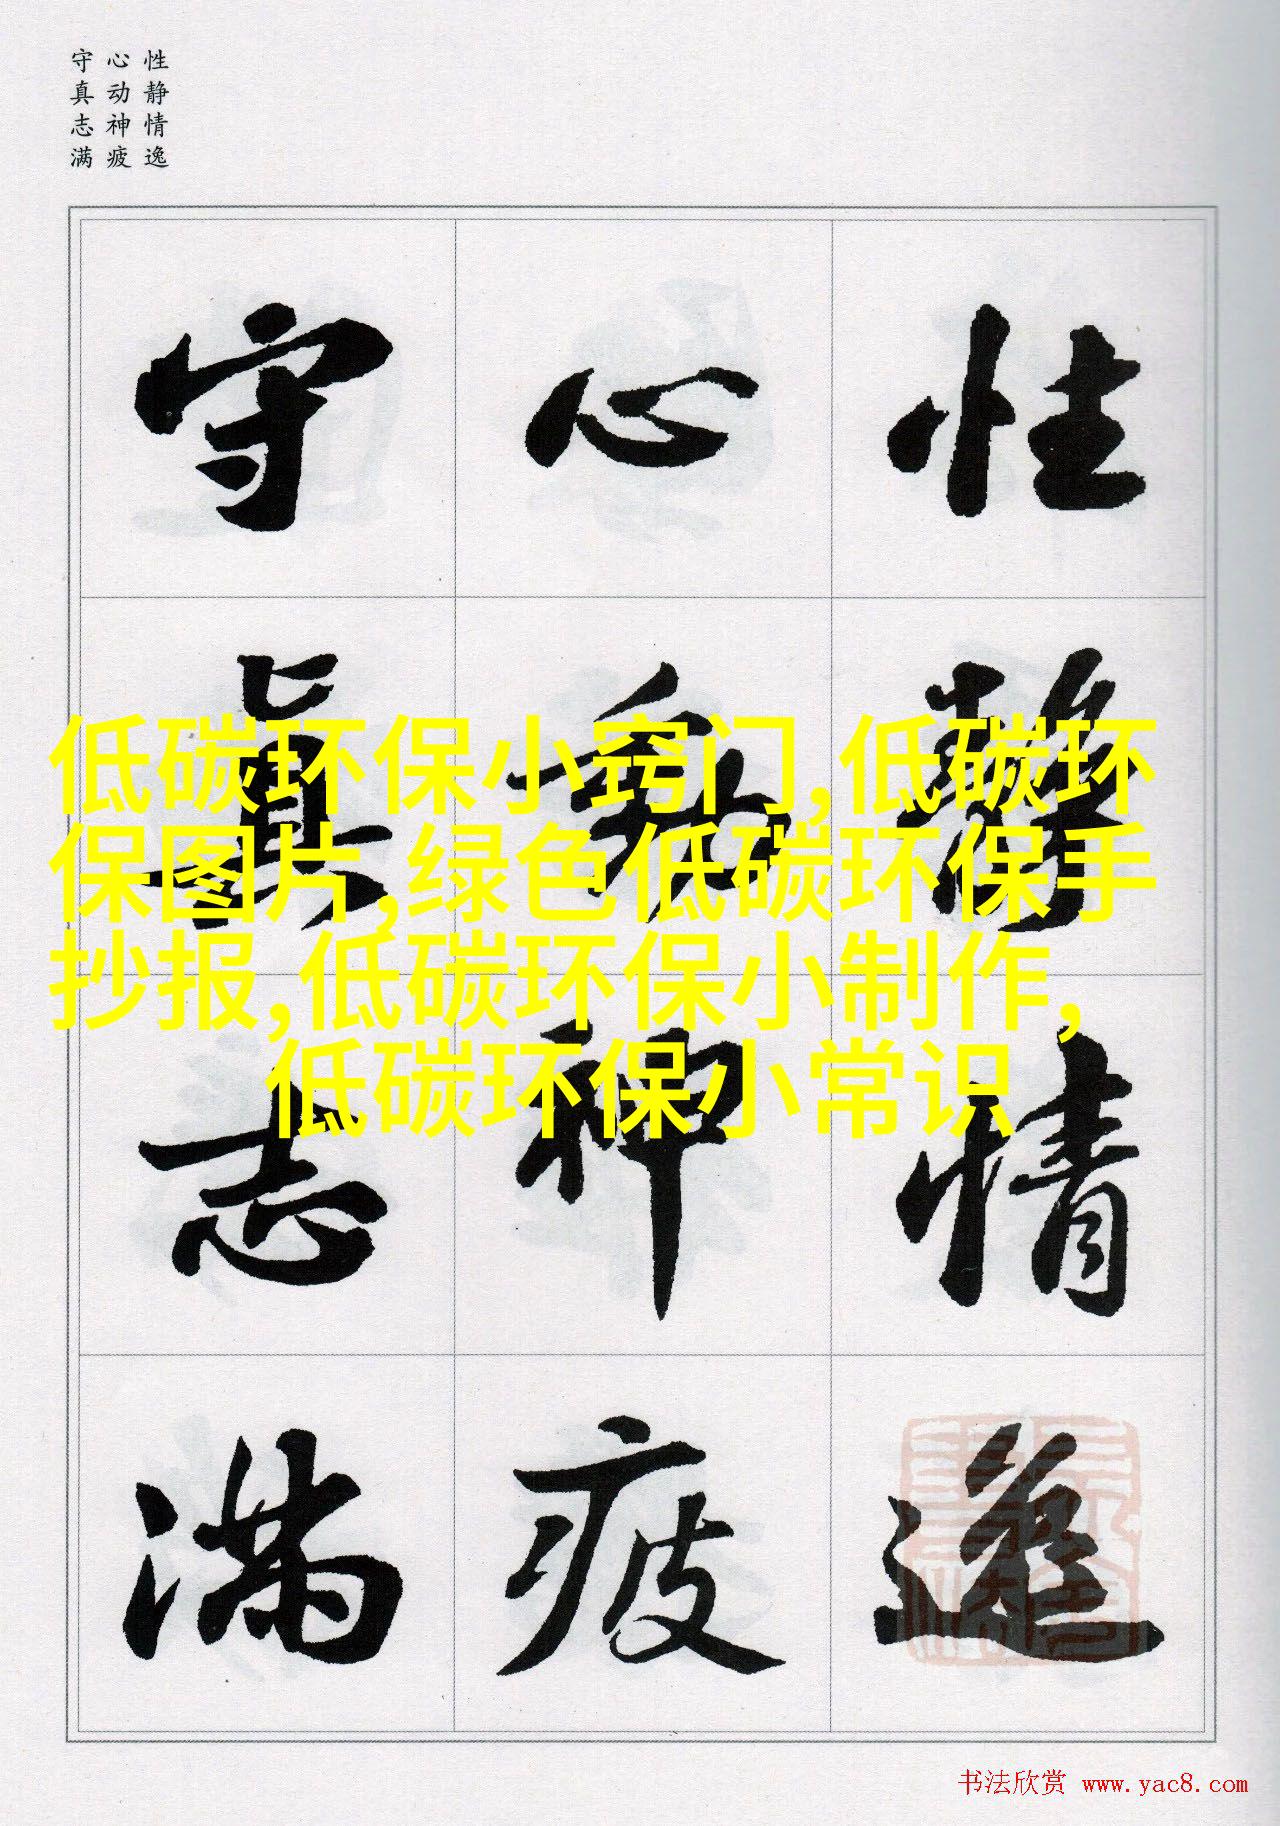 性静情逸
心动神疲
守真志满
性靜情逸
心動神疲
守真志滿
低碳环保小窍门,低碳环
保图片,绿色低碳环保手
抄报,低碳环保小制作,
低碳环保小常识
书法欣赏 www.yac8.com